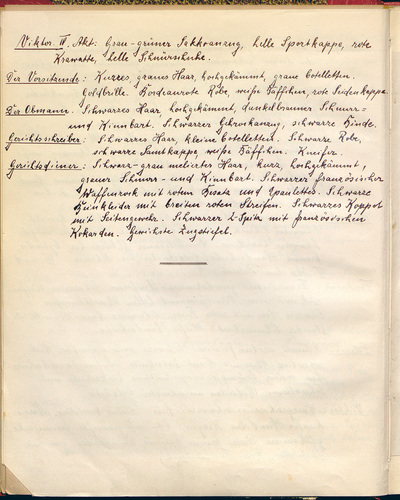 Viktor. II. Akt: Grau-grüner Sakkoanzug, helle Sportkappe, rote
Krawatte, helle Schnürschuhe.
Der Vorsitzende: Kurzes, graues Haar, hochgekämmt, graue Cotelletten.
Goldbrille. Bordeaurote Robe, weiße Bäffchen, rote Seidenkappe.
Der Obmann: Schwarzes Haar, hochgekämmt, dunkelbrauner Schnurr-
und Kinnbart. Schwarzer Gehrockanzug, schwarze Binde.
Gerichtsschreiber: Schwarzes Haar, kleine Cotelletten. Schwarze Robe,
schwarze Samtkappe, weiße Bäffchen. Kneifer.
Gerichtsdiener: Schwarz-grau meliertes Haar, kurz, hochgekämmt,
grauer Schnurr- und Kinnbart. Schwarzer französischer
Waffenrock mit rotem Besatz und Epaulettes. Schwarze
Beinkleider mit breiten roten Streifen. Schwarzes Koppel
mit Seitengewehr. Schwarzer 2-Spitz mit französischen
Kokarden. Gewichste Zugstiefel.